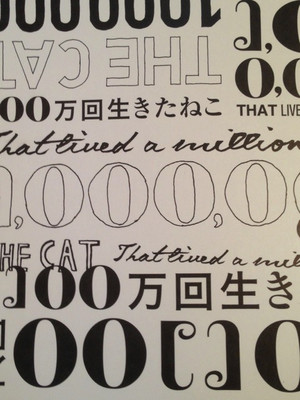 1000000
THE CAT
0,0
THAT LIVE
00万回生きたねこ
That lived a million
1,000,00
THE CAT That lived a mil
100万回生き